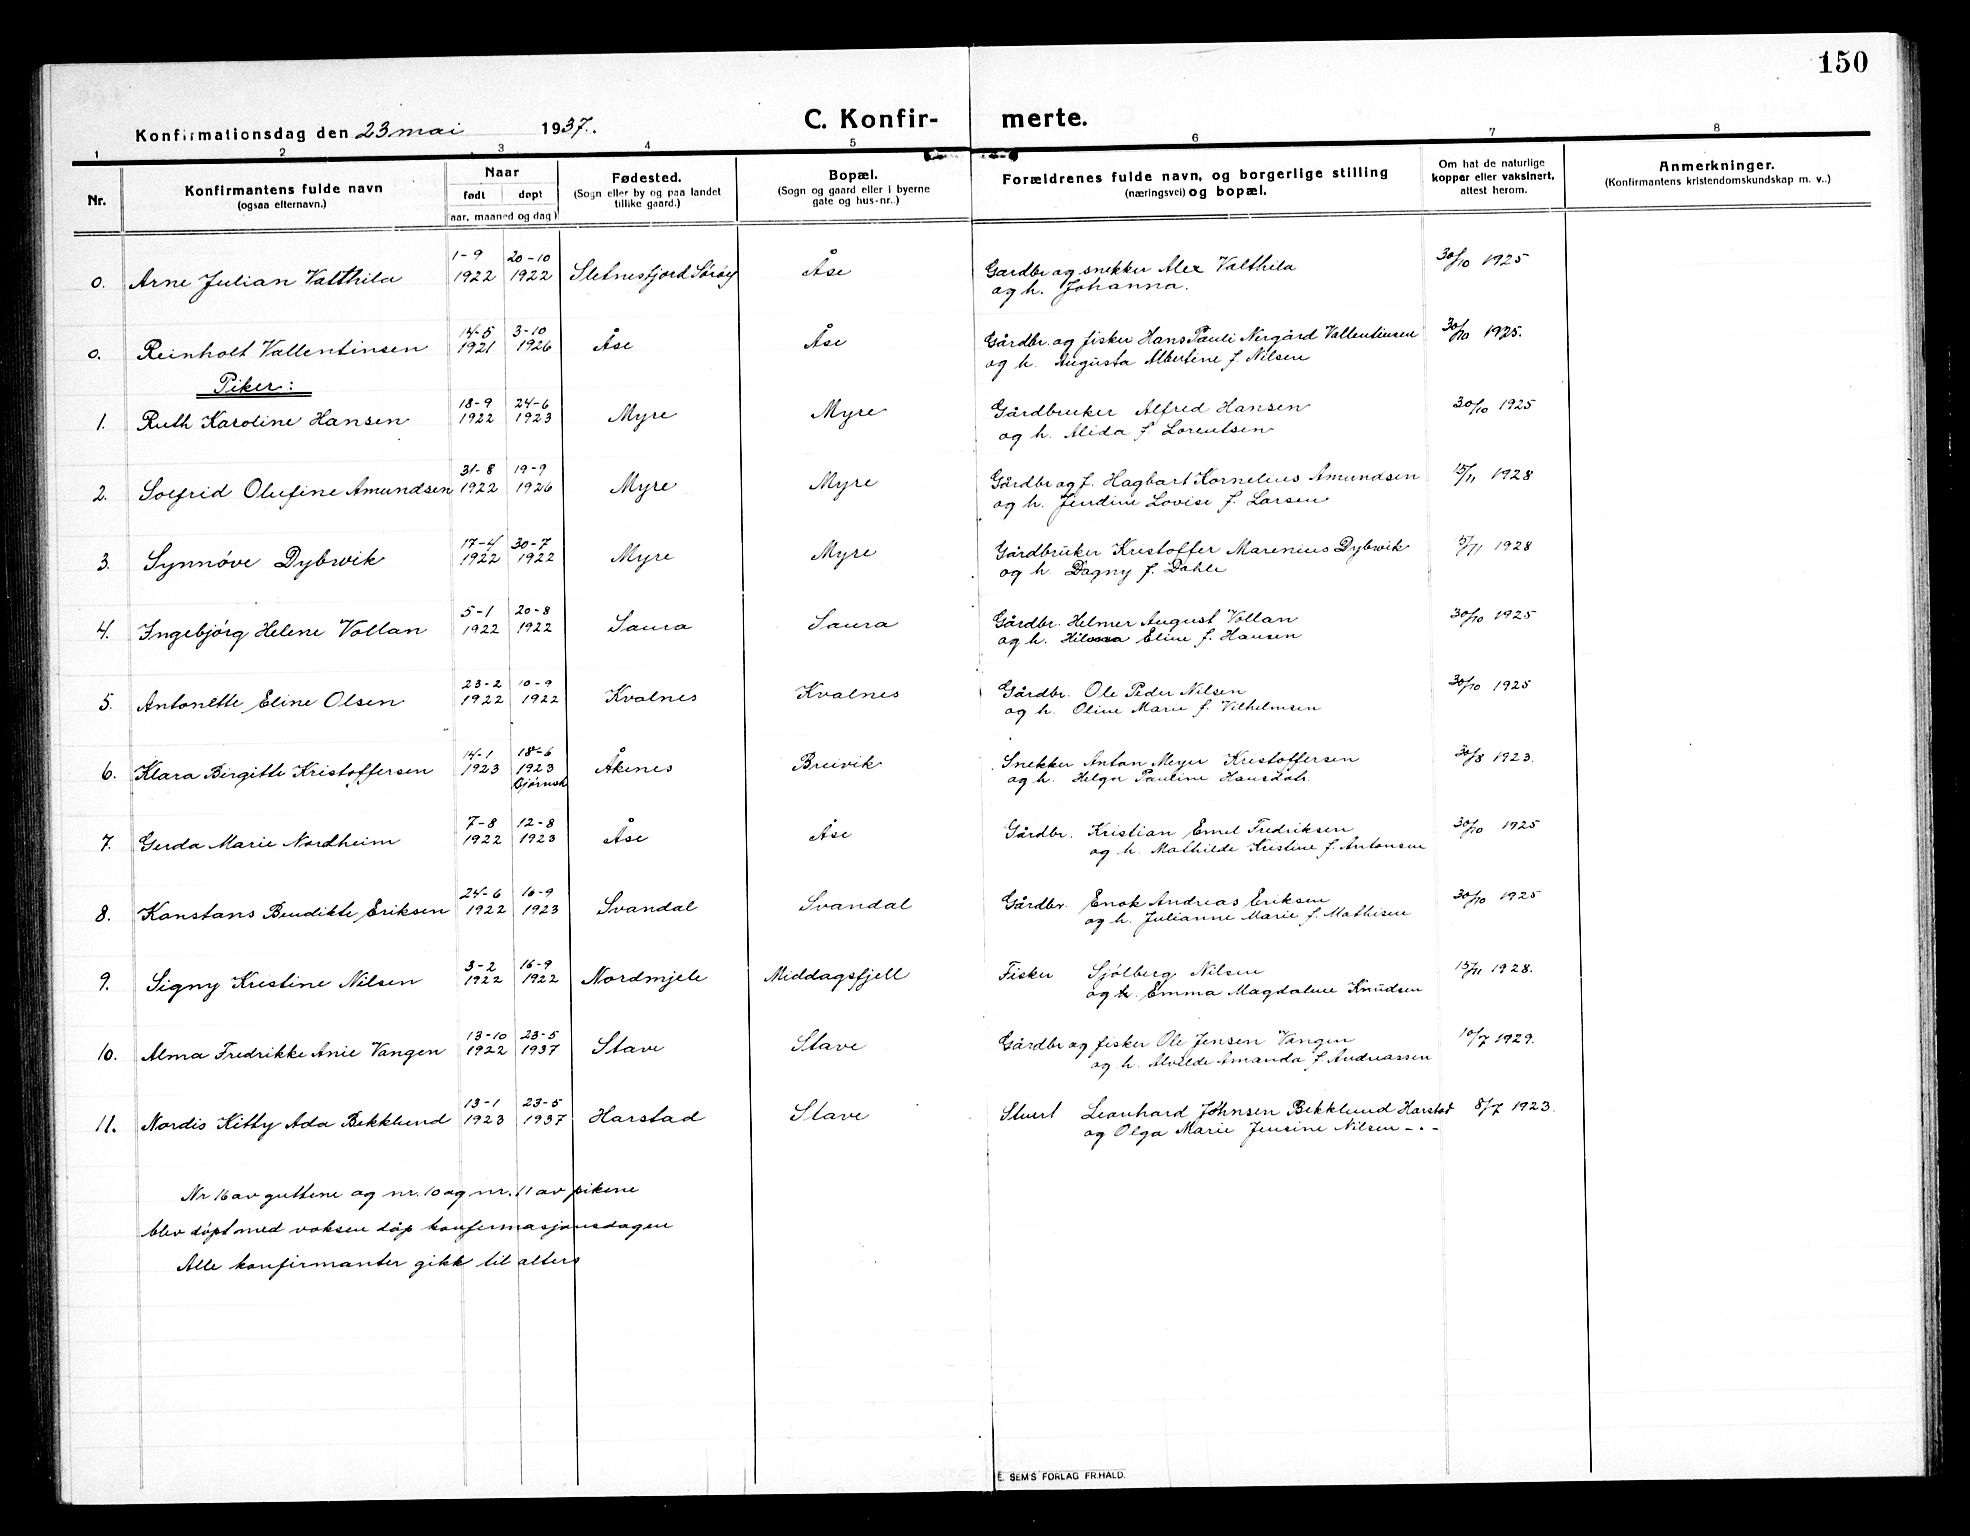 150
Konfirmationsdag den 23 mai 1937. C. Konfir- merte.
1 2 3 4 5 6 7 8
Nr. Konfirmantens fulde navn (ogsaa efternavn.) Naar født døpt (aar, maaned og dag) Fødested. (Sogn eller by og paa landet tillike gaard.) Bopæl. (Sogn og gaard eller i byerne gate og hus-nr..) Forældrenes fulde navn, og borgerlige stilling (næringsvei) og bopæl. Om hat de naturlige kopper eller vaksinert, attest herom. Anmerkninger. (Konfirmantens kristendomskundskap m. v..)
1-9 20-10
0. Arne Julian Valthila 1922 1922 Sletnesfjord Sørøy Åse Gardbr og snekker Alex Valthila 30/10 1925
og h. Johanna.
14-5 3-10
0. Reinholt Vallentinsen 1921 1926 Åse Åse Gårdbr. og fisker Hans Pauli Nergård Vallentinsen 30/10 1925.
og h. Augusta Albertine f. Nilsen
Piker:
18-9 24-6
1. Ruth Karoline Hansen 1922 1923 Myre Myre Gårdbruker Alfred Hansen 30/10 1925
og h. Alida f. Lorentsen
31-8 19-9
2. Solfrid Olufine Amundsen 1922 1926 Myre Myre Gårdbr og f. Hagbart Kornelius Amundsen 15/11 1928
og h. Jendine Lovise f. Larsen
17-4 30-7
3. Synnøve Dybwik 1922 1922 Myre Myre Gårdbruker Kristoffer Marenius Dybwik 15/11 1928
og h. Dagny f. Dahle
5-1 20-8
4. Ingebjørg Helene Vollan 1922 1922 Saura Saura Gårdbr. Helmer August Vollan 30/10 1925
og h. Eline f. Hansen
23-2 10-9
5. Antonette Eline Olsen 1922 1922 Kvalnes Kvalnes Gårdbr. Ole Peder Nilsen 30/10 1925
og h. Oline Marie f. Vilhelmsen
14-1 18-6
6. Klara Birgitte Kristoffersen 1923 1923 Åknes Breivik Snekker Anton Meyer Kristoffersen 30/8 1923.
Bjørnsk og h. Helga Pauline Hansdatr.
7-8 12-8
7. Gerda Marie Nordheim 1922 1923 Åse Åse Gårdbr. Kristian Emel Fredriksen 30/10 1925
og h. Mathilde Kristine f. Antonsen
24-6 16-9
8. Konstans Bendikte Eriksen 1922 1923 Svandal Svandal Gårdbr. Enok Andreas Eriksen 30/10 1925
og h. Julianne Marie f. Mathisen
3-2 16-9
9. Signy Kristine Nilsen 1922 1922 Nordmjele Middagsfjell Fisker Sjølberg Nilsen 15/11 1928.
og h. Emma Magdalene Knudsen
13-10 23-5
10. Alma Fredrikke Anie Vangen 1922 1937 Stave Stave Gårdbr og fisker Ole Jensen Vangen 10/7 1929.
og h. Alvilde Amanda f Andreassen
13-1 23-5
11. Nordis Kitty Ada Bekklund 1923 1937 Harstad Stave Stuert Leonhard Johnsen Bekklund Harstad 8/7 1923.
og Olga Marie Jensine Nilsen -"-
Nr 16 av guttene og nr. 10 og nr. 11 av pikene
blev døpt med voksen dåp konfirmasjonsdagen
Alle konfirmanter gikk til alters
E. SEMS FORLAG FR.HALD.